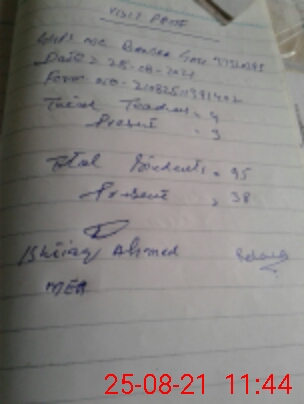 VISIT PROOF
GHPS
Date = 25-08-2021
Form no-
Total Teachers = 4
Present = 3
Total Students = 95
Present = 38
Ishtiaq Ahmed
MEA
25-08-21 11:44